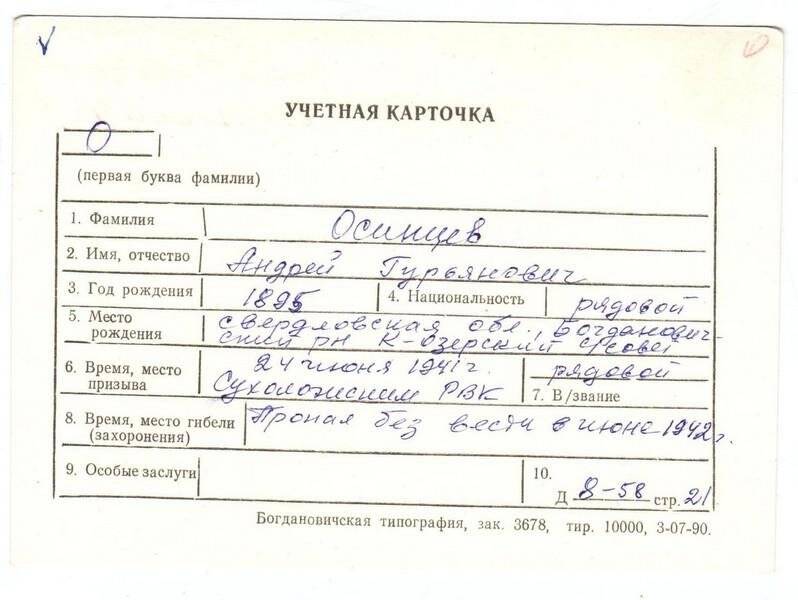 УЧЕТНАЯ КАРТОЧКА
О
(первая буква фамилии)
1. Фамилия Осинцев
2. Имя, отчество Андрей Гурьянович
3. Год рождения 1895 4. Национальность рядовой
5. Место рождения Свердловская обл., Богданович-
ский рн К-Озерский с/совет
6. Время, место призыва 24 июня 1941 г. рядовой
Сухоложским РВК 7. В/звание
8. Время, место гибели (захоронения) Пропал без вести в июне 1942 г.
9. Особые заслуги 10.
Д 8-58 стр. 21
Богдановичская типография, зак. 3678, тир. 10000, 3-07-90.